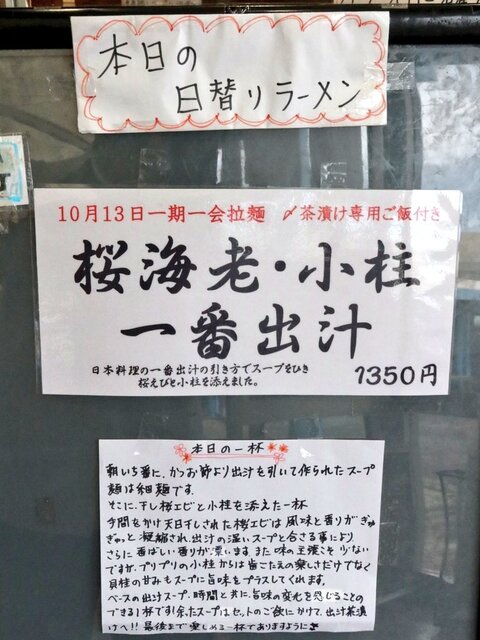 本日の
日替りラーメン
10月13日一期一会拉麺　〆茶漬け専用ご飯付き
桜海老・小柱
一番出汁
日本料理の一番出汁の引き方でスープをひき
桜えびと小柱を添えました。
1350円
本日の一杯
朝いち番に、かつお節より出汁を引いて作られたスープ
麺は細麺です。
そこに、干し桜エビと小柱を添えた一杯
手間をかけ天日干しされた桜エビは風味と香りがぎゅ
ぎゅっと凝縮され、出汁の温いスープと合さる事により
さらに香ばしい香りが漂います。また味の主張こそ少ない
ですが、プリプリの小柱からは歯ごたえの楽しさだけでなく
貝柱の甘みもスープに旨味をプラスしてくれます。
ベースの出汁スープ、時間と共に、旨味の変化を感じることの
できる1杯です!余ったスープはセットのご飯にかけて、出汁茶漬
けへ!!最後まで楽しめる一杯でありますように♪